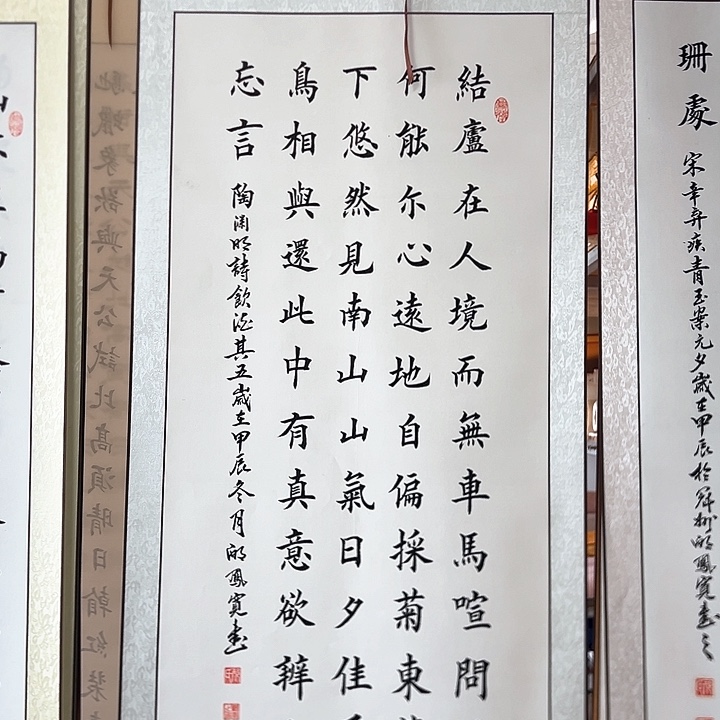 結廬在人境而無車馬喧問
何能尔心遠地自偏採菊東
下悠然見南山山氣日夕佳
鳥相與還此中有真意欲辨
忘言
陶渊明詩飲酒其五歲在甲辰冬月
鳳寛書
珊處
宋辛弃疾青玉案元夕歲在甲辰於
鳳寛書之
與天公試比高須晴日
紅裝